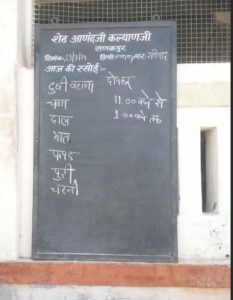 शेठ आणंदजी कल्याणजी
राणकपुर
दिनांक 23/3/14 तिथी वार: शनिवार
आज की रसोई:-
दुधी चटाना दोपहर
चणा 11.00 बजे से
दाल 1.00 बजे तक
भात
फलड
पुरी
चटनी